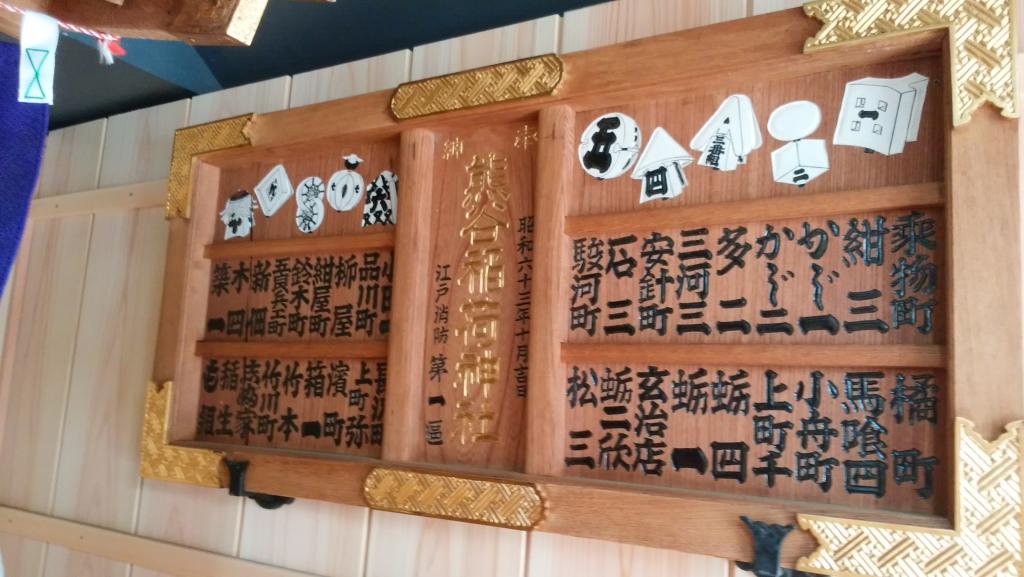 一
二
三番組
四
五
乗物町
紺三
かじ一
かじ二
多二
三河三
安針町
石三
駿河町
橘町
馬喰四
小舟町
上町千
蛎四
蛎一
玄治店
蛎二欣
松三
奉
納
昭和六十三年十月吉日
熊谷稲荷神社
江戸消防第一區
十
品川町
柳屋
紺屋町
鈴木町
新佃
木四
築一
上町弥
濱町
箱一
竹本
竹川町
稲生
も組